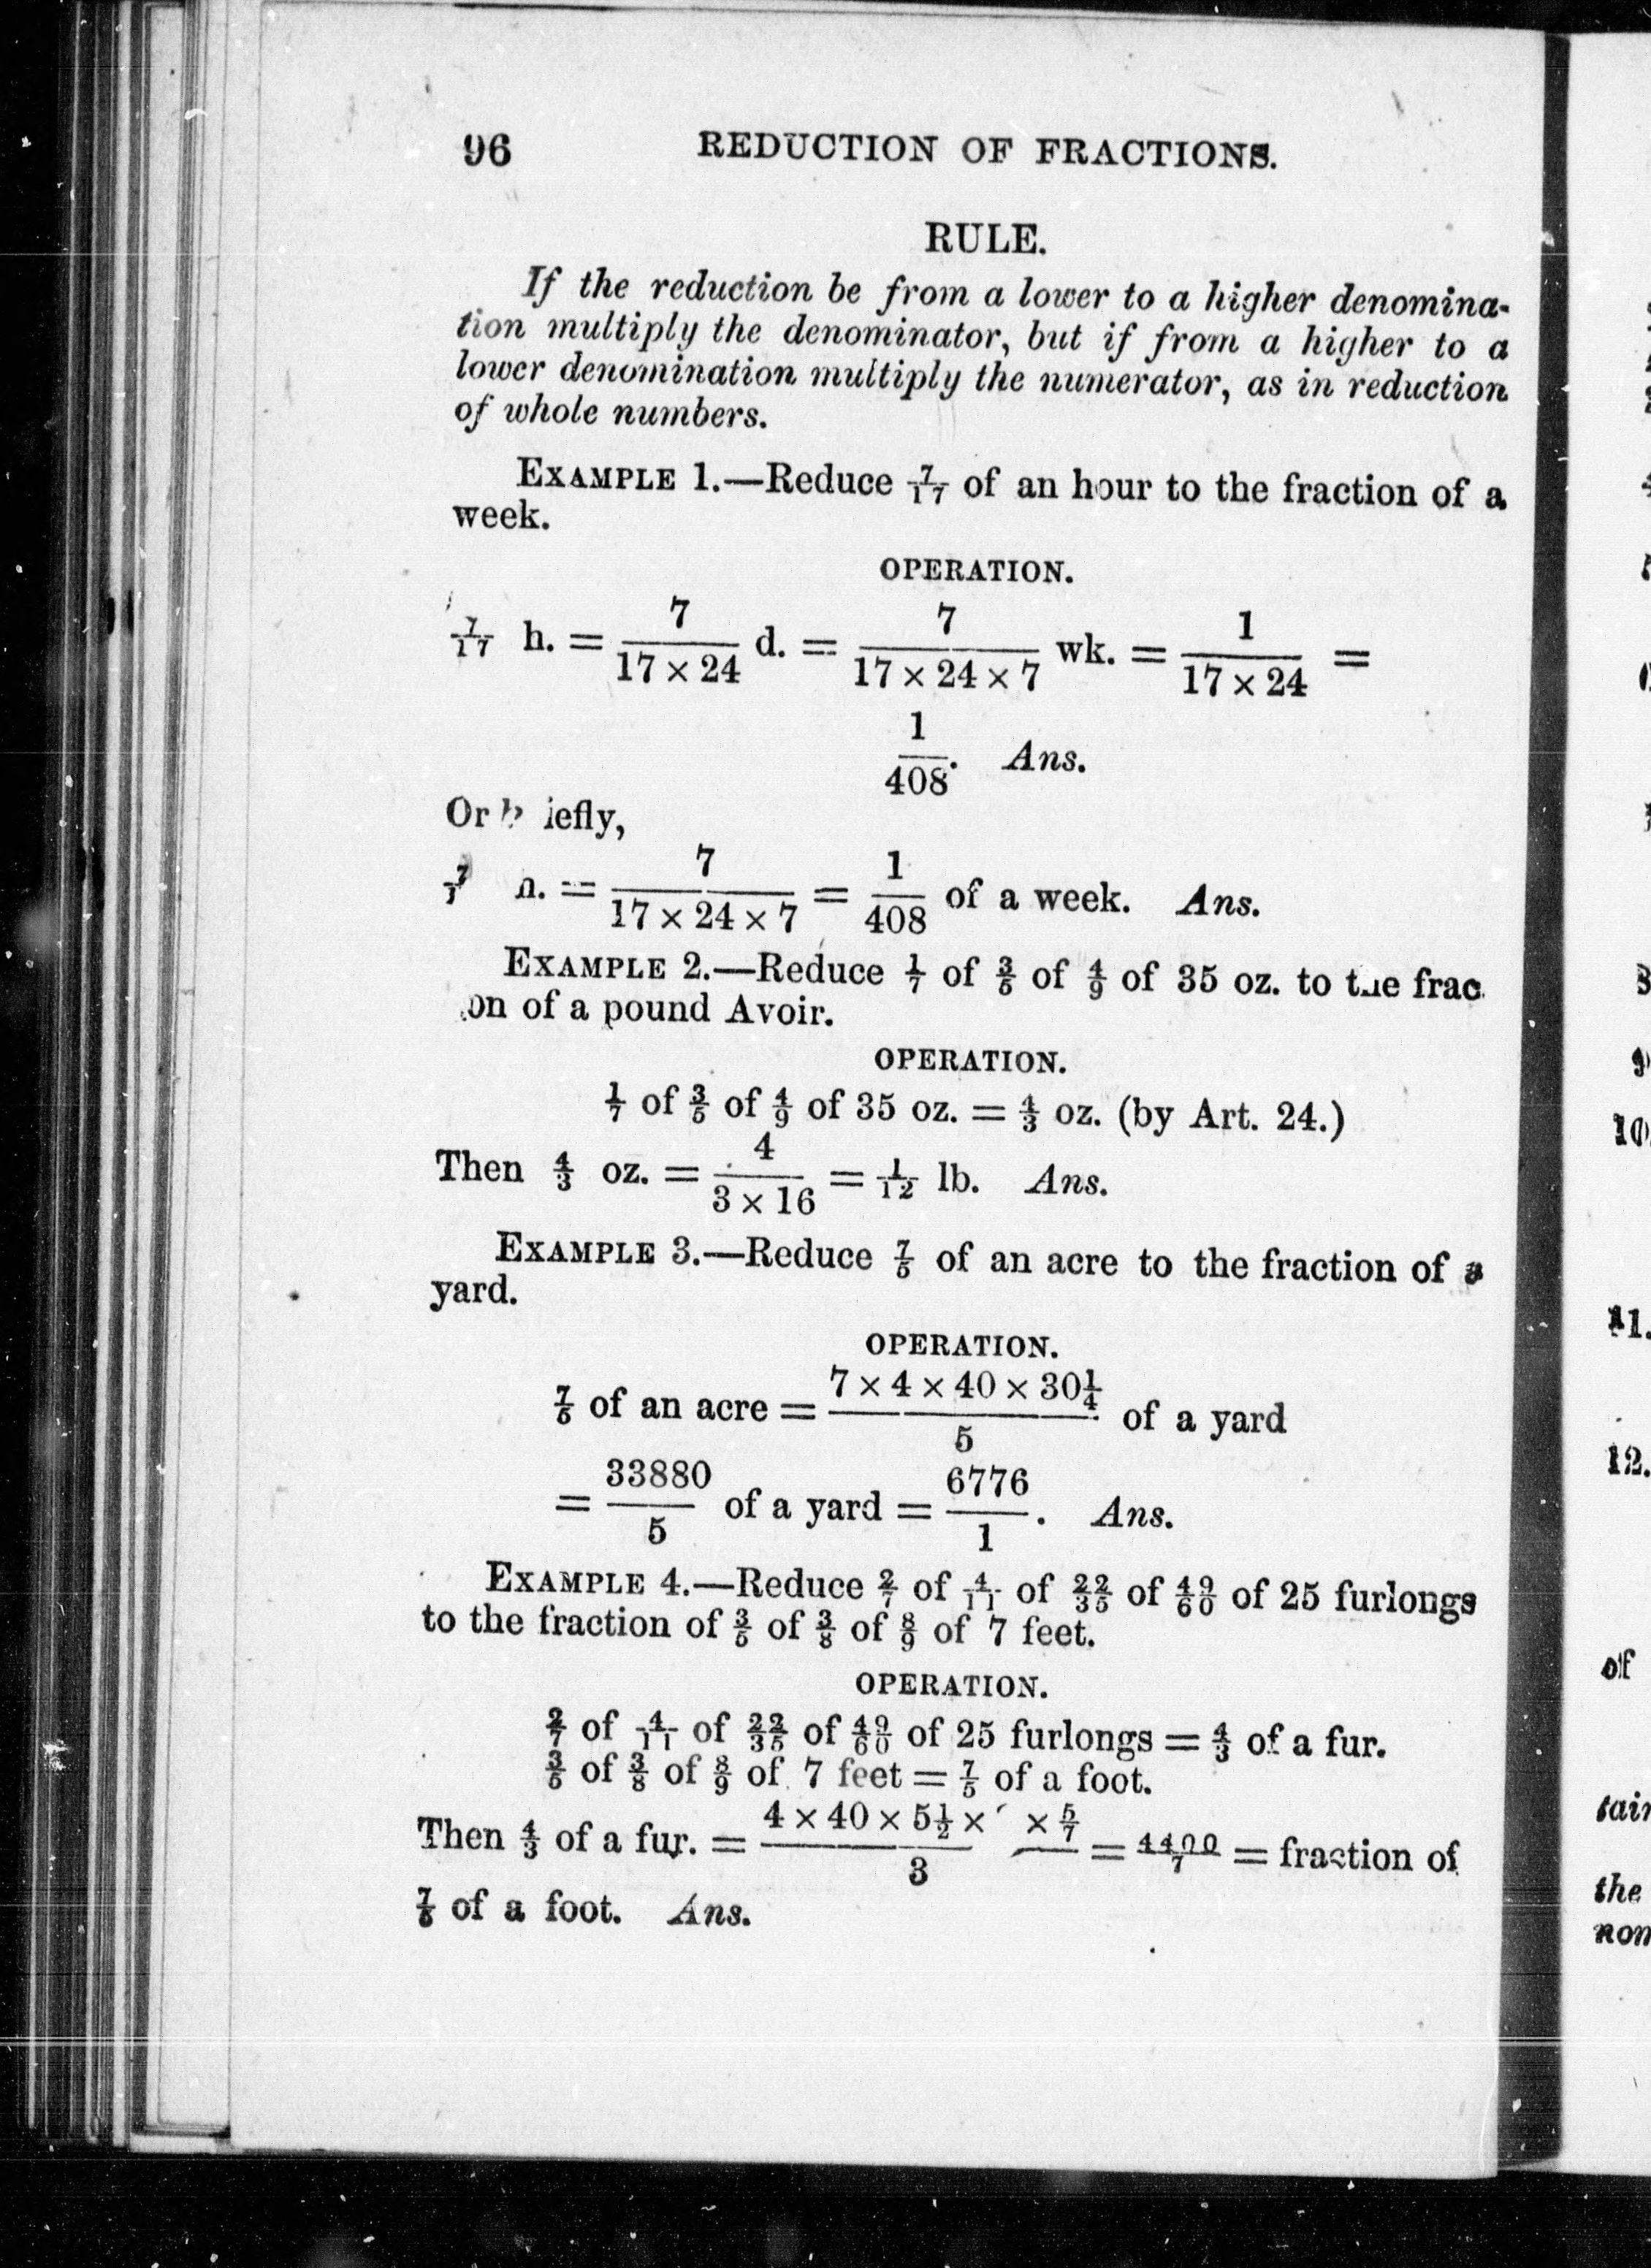 96 REDUCTION OF FRACTIONS.
RULE.
If the reduction be from a lower to a higher denomina-
tion multiply the denominator, but if from a higher to a
lower denomination multiply the numerator, as in reduction
of whole numbers.
EXAMPLE 1.—Reduce 7/17 of an hour to the fraction of a
week.
OPERATION.
7/17 h. = 7/(17 × 24) d. = 7/(17 × 24 × 7) wk. = 1/(17 × 24) =
1/408. Ans.
Or iefly,
= 7/(17 × 24 × 7) = 1/408 of a week. Ans.
EXAMPLE 2.—Reduce 1/7 of 3/5 of 4/9 of 35 oz. to the frac
on of a pound Avoir.
OPERATION.
1/7 of 3/5 of 4/9 of 35 oz. = 4/3 oz. (by Art. 24.)
Then 4/3 oz. = 4/(3 × 16) = 1/12 lb. Ans.
EXAMPLE 3.—Reduce 7/5 of an acre to the fraction of a
yard.
OPERATION.
7/5 of an acre = (7 × 4 × 40 × 30 1/4)/5 of a yard
= 33880/5 of a yard = 6776/1. Ans.
EXAMPLE 4.—Reduce 2/7 of 4/11 of 22/35 of 49/60 of 25 furlongs
to the fraction of 3/5 of 3/8 of 8/9 of 7 feet.
OPERATION.
2/7 of 4/11 of 22/35 of 49/60 of 25 furlongs = 4/3 of a fur.
3/5 of 3/8 of 8/9 of 7 feet = 7/5 of a foot.
Then 4/3 of a fur. = (4 × 40 × 5 1/2 × × 5/7)/3 = 4400/7 = fraction of
7/5 of a foot. Ans.
10
11.
12.
of
tain
the
non